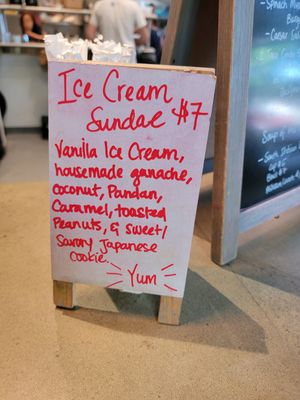 Ice Cream
Sundae $7
Vanilla Ice Cream,
housemade ganache,
Coconut, Pandan,
Caramel, toasted
Peanuts, & Sweet/
Savory Japanese
Cookie.
Yum
Spinach
Caesar
Soup